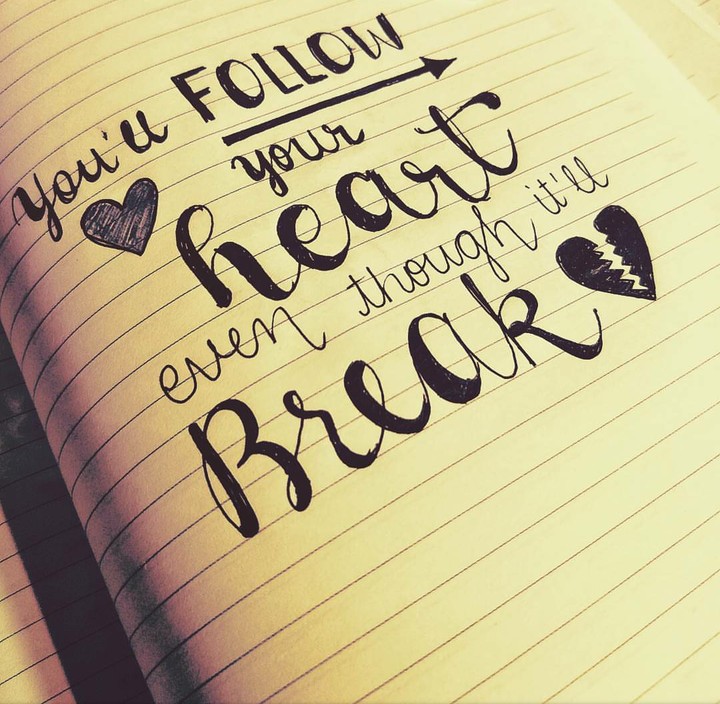 you'll FOLLOW
your
heart
even though it'll
Break